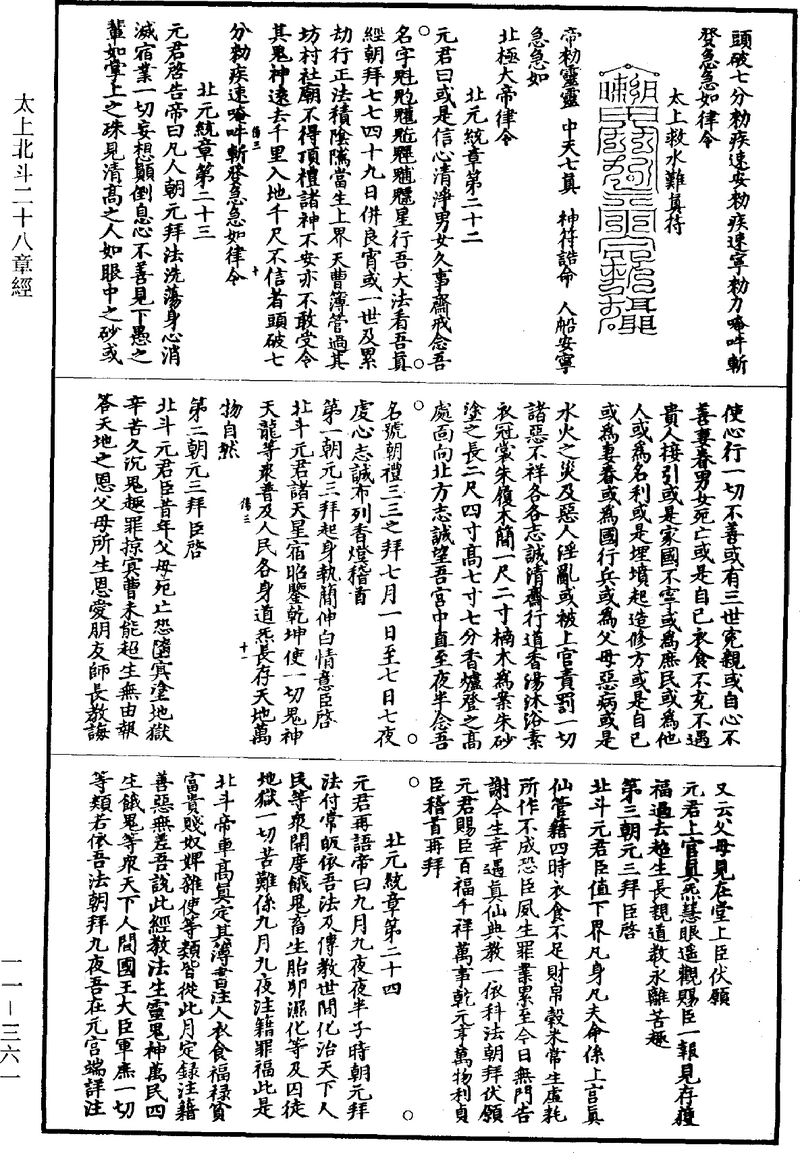 太上北斗二十八章經
一一—三六一
頭破七分勑疾速安勑疾速寧勑刀唵吽斬
發急急如律令
太上救水難真符
帝勑靈靈 中天七真 神符誥命 人船安寧
急急如
北極大帝律令
北元統章第二十二
元君曰或是信心清淨男女久事齋戒念吾
名字魁䰢䰡魓星行吾大法看吾真
經朝拜七七四十九日併良宵或一世及累
劫行正法積陰隲當生上界天曹簿管過其
坊村社廟不得頂禮諸神不安亦不敢受令
其鬼神遠去千里入地千尺不信者頭破七
傷三 十
分勑疾速唵吽斬發急急如律令
北元統章第二十三
元君啓告帝曰凡人朝元拜法洗蕩身心消
滅宿業一切妄想顛倒息心不善見下愚之
輩如掌上之珠見清高之人如眼中之砂或
使心行一切不善或有三世寃親或自心不
善妻眷男女死亡或是自己衣食不充不遇
貴人接引或是家國不寧或為庶民或為他
人或為名利或是埋墳起造修方或是自己
或為妻眷或為國行兵或為父母惡病或是
水火之災及惡人淫亂或被上官責罰一切
諸惡不祥各各志誠清齋行道香湯沐浴素
衣冠裳朱履木簡一尺二寸楠木為案朱砂
塗之長二尺四寸高七寸七分香爐登之高
處面向北方志誠望吾宮中直至夜半念吾
名號朝禮三三之拜七月一日至七日七夜
虔心志誠布列香燈稽首
第一朝元三拜起身執簡伸白情意臣啓
北斗元君諸天星宿昭鑒乾坤使一切鬼神
天龍等衆普及人民各身道炁長存天地萬
傷三 十一
物自然
第二朝元三拜臣啓
北斗元君臣昔年父母死亡恐隨寃塗地獄
辛苦久沉鬼趣罪掠寃曹未能超生無由報
答天地之恩父母所生恩愛朋友師長教誨
又云父母見在堂上臣伏願
元君上官真炁慧眼遥觀賜臣一報見存獲
福過去超生長親道教永離苦趣
第三朝元三拜臣啓
北斗元君臣值下界凡身凡夫命係上宮真
仙管籍四時衣食不足財帛穀米常生虛耗
所作不成恐臣夙生罪業累至今日無門告
謝今生幸遇真仙典教一依科法朝拜伏願
元君賜臣百福千祥萬事乾元享萬物利貞
臣稽首再拜
北元統章第二十四
元君再語帝曰九月九夜夜半子時朝元拜
法付常皈依吾法及傳教世間化治天下人
民等衆開度餓鬼畜生胎卵濕化等及囚徒
地獄一切苦難係九月九夜注籍罪福此是
北斗帝車高真定其簿書注人衣食福禄貧
富貴賤奴婢雜使等類皆從此月定録注籍
善惡無差吾說此經教法生靈鬼神萬民四
生餓鬼等衆天下人間國王大臣軍庶一切
等類若依吾法朝拜九夜吾在元宮端詳注